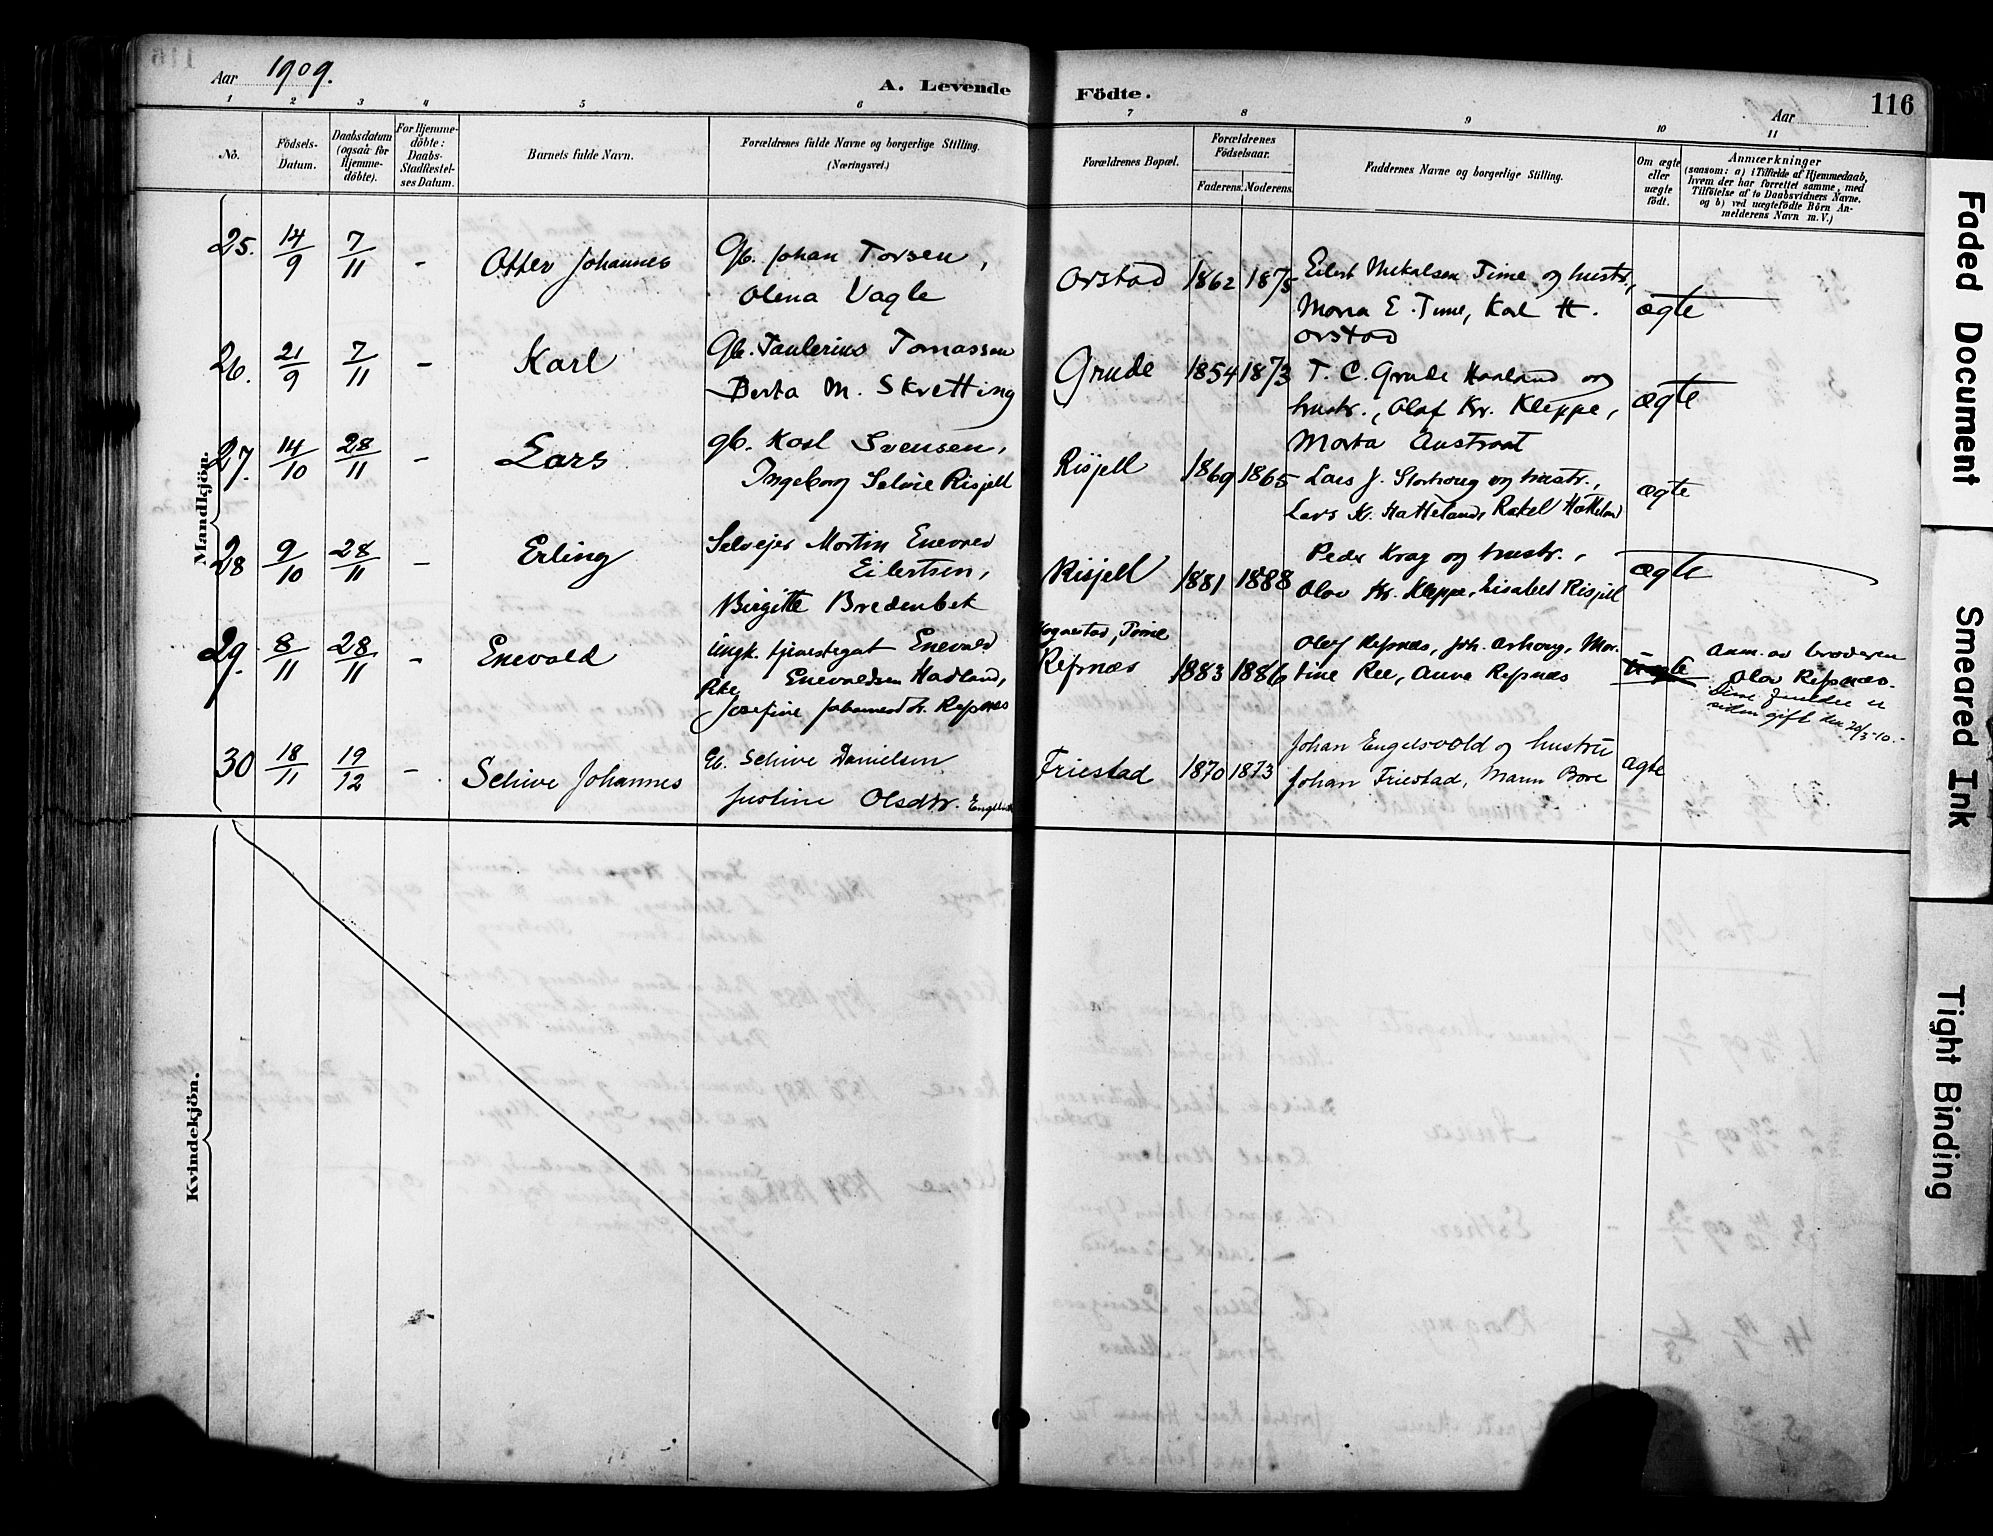 Aar 1909.
A. Levende Födte.
Aar
116
1 2 3 4 5 6 7 8 9 10 11
No.
Födsels-Datum.
Daabsdatum (ogsaa for Hjemme-döbte).
For Hjemme-döbte: Daabs-Stadfæstel-ses Datum.
Barnets fulde Navn.
Forældrenes fulde Navne og borgerlige Stilling.
(Næringsvei.)
Forældrenes Bopæl.
Forældrenes Födselsaar.
Faderens. Moderens.
Faddernes Navne og borgerlige Stilling.
Om ægte eller uægte födt.
Anmærkninger
(saasom: a) i Tilfælde af Hjemmedaab,
hvem der har forrettet samme, med
Tilföielse af to Daabsvidners Navne.
og b) ved uægtefödte Börn An-
melderens Navn m.V.)
Mandkjön.
25. 14/9 7/11 - Otter Johannes
Gb. Johan Torsen,
Olena Vagle
Orstad 1862 1875
Eilert Mikalsen Time og hustr.,
Maria E. Time, Karl H.
Orstad
ægte
26. 21/9 7/11 - Karl
Gb. Taulerius Tomassen
Berta M. Skretting
Grude 1854 1873
T. C. Grude Haaland og
hustr., Olaf Kr. Kleppe,
Marta Austraat
ægte
27. 14/10 28/11 - Lars
gb. Karl Svensen,
Ingeborg Selvie Risjell
Risjell 1869 1865
Lars J. Storhoug og hustr.,
Lars K. Hatteland, Rakel Hatteland
ægte
28 9/10 28/11 - Erling
Selvejer Martin Enevald
Eilertsen,
Birgitte Bredenbek
Risjell 1881 1888
Peder Krag og hustr.,
Olav Kr. Kleppe, Lisabet Risjell
ægte
29. 8/11 28/11 - Enevald
ungk. tjenestegut Enevald
Enevaldsen Hadland,
Pike Josefine Johannesdtr. Refsnes
Hognestad, Time
Refsnæs 1883 1886
Olaf Refsnæs, Joh. Ashoug, Mar-
tine Ree, Anna Refsnæs
uægte
Anm. av broderen
Olav Refsnæs.
Disse forældre er
siden gift den 20/3-10.-
30 18/11 19/12 - Schive Johannes
Gb. Schive Danielsen
Justine Olsdtr.
Friestad 1870 1873
Johan Engelsvold og hustru
Johan Friestad, Marin Bore
ægte
Kvindekjön.
Faded Document
Smeared Ink
Tight Binding